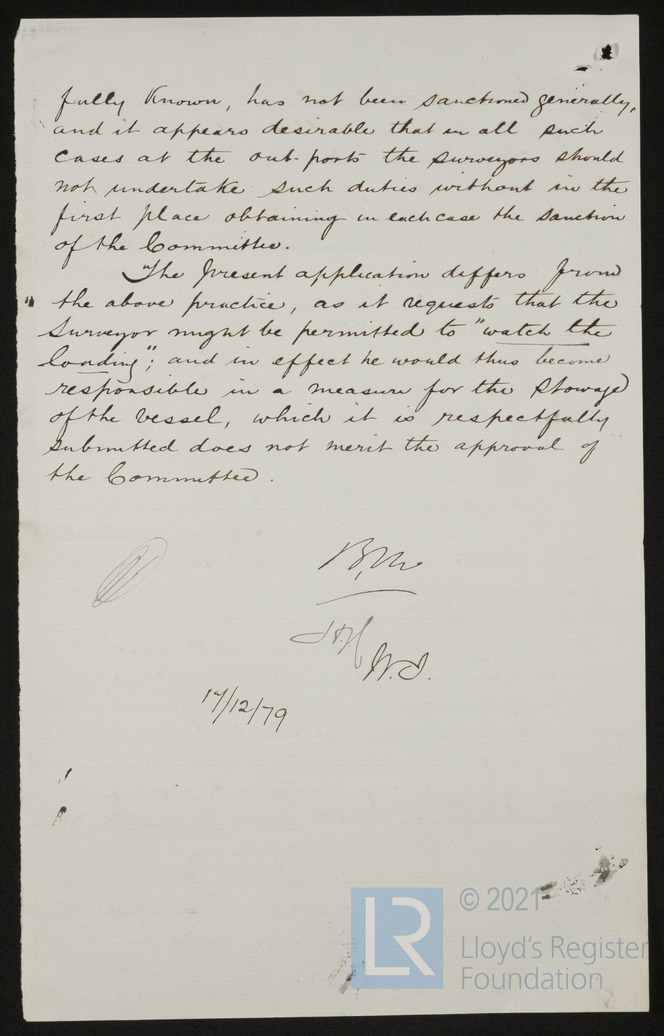 fully known, has not been sanctioned generally,
and it appears desirable that in all such
cases at the out-ports the surveyors should
not undertake such duties without in the
first place obtaining in each case the sanction
of the Committee.
The present application differs from
the above practice, as it requests that the
Surveyor might be permitted to "watch the
loading"; and in effect he would thus become
responsible in a measure for the stowage
of the vessel, which it is respectfully
submitted does not merit the approval of
the Committee.
W.I.
17/12/79
LR
© 2021
Lloyd's Register
Foundation